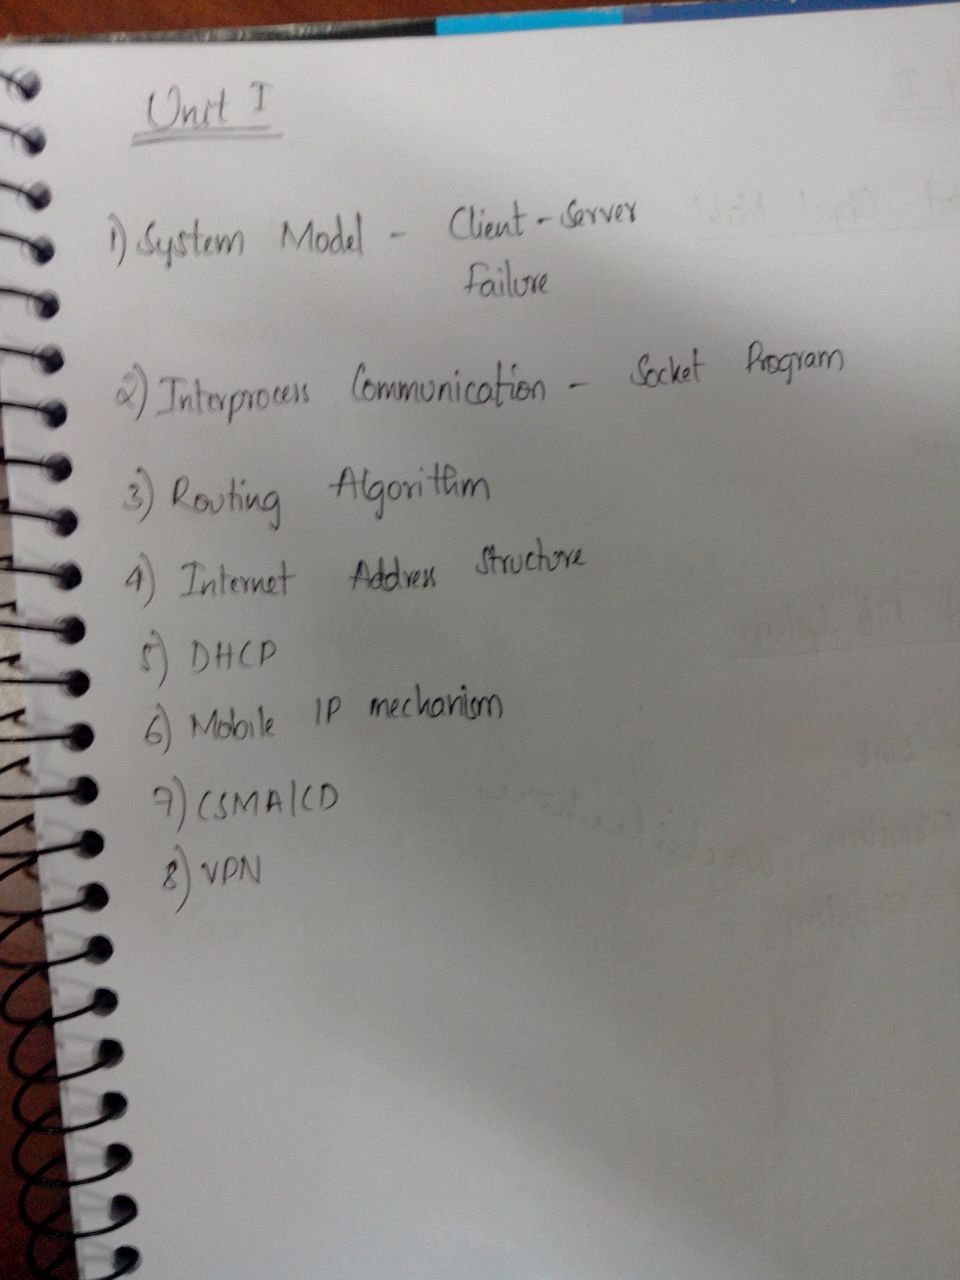 Unit I
1) System Model - Client-Server
Failure
2) Interprocess Communication - Socket Program
3) Routing Algorithm
4) Internet Address Structure
5) DHCP
6) Mobile IP mechanism
7) CSMA/CD
8) VPN